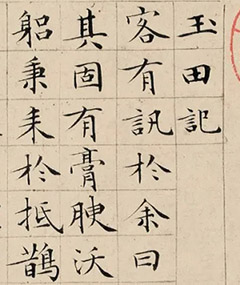 玉田記
客有訊於余曰
其固有膏腴沃
躬秉耒於抵鵲